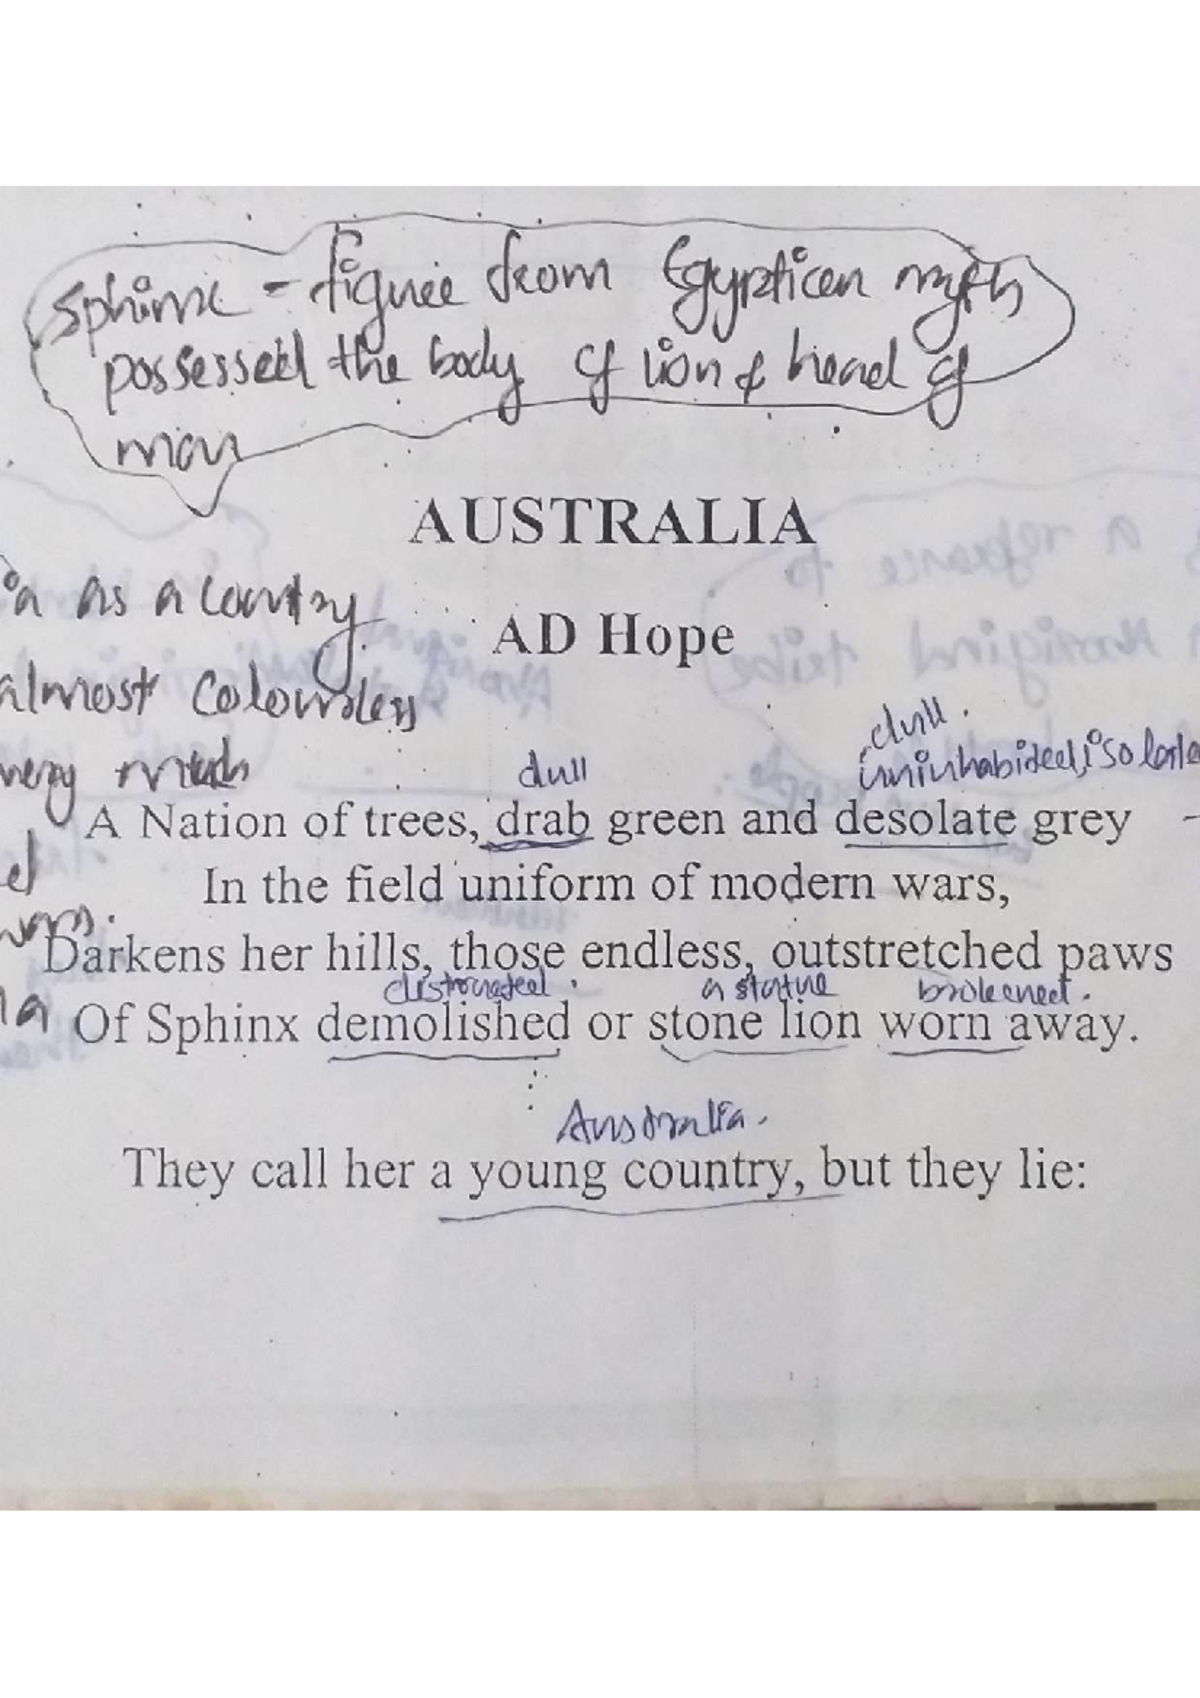 Sphinx - figure from Egyptican myth
possessed the body of lion & head of
man
AUSTRALIA
a as a country
AD Hope
almost colourless
dull
very much
dull.
uninhabited, isolate
A Nation of trees, drab green and desolate grey
In the field uniform of modern wars,
Darkens her hills, those endless, outstretched paws
a statue
Of Sphinx demolished or stone lion worn away.
Australia.
They call her a young country, but they lie: